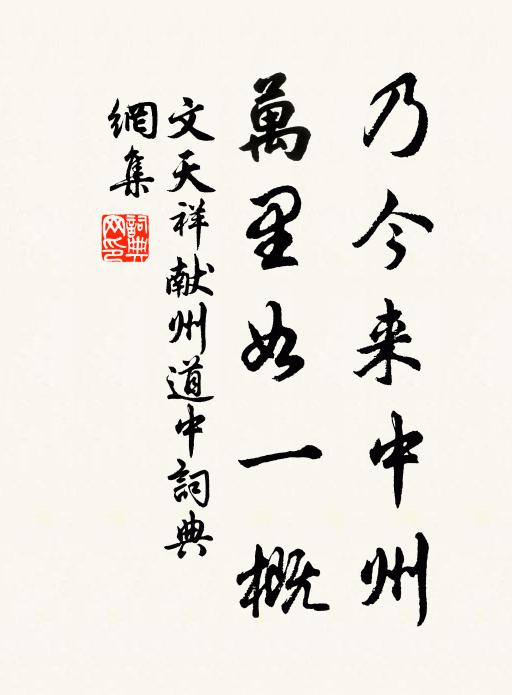 乃今来中州
萬里如一概
文天祥献州道中詞典
網集
詞典網印